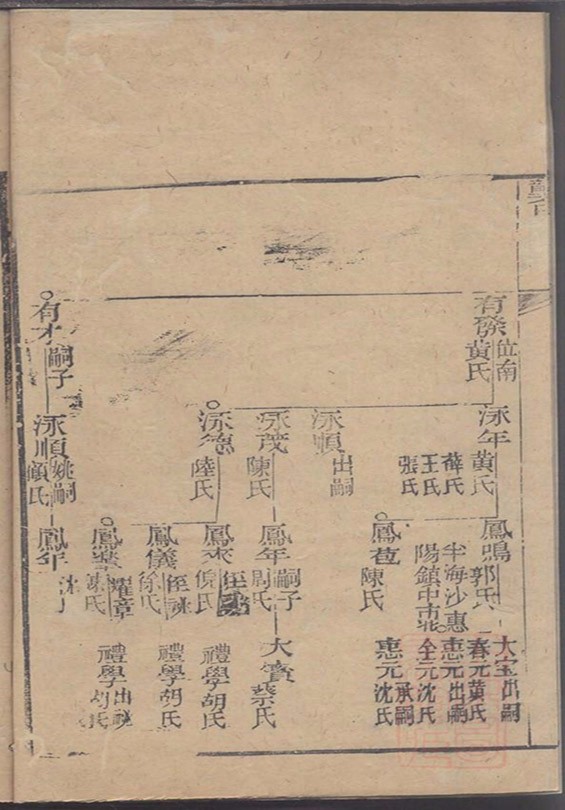 有發
位南
黃氏
有才
嗣子
泳年
黃氏
薛氏
王氏
張氏
泳順
出嗣
泳茂
陳氏
泳德
陸氏
泳順
姚嗣
顧氏
鳳鳴
郭氏
半海沙惠
陽鎮中市北
鳳苞
陳氏
鳳年
嗣子
周氏
鳳來
侄
倪氏
鳳儀
侄
徐氏
耀章
陳氏
鳳年
大宝
出嗣
春元
黃氏
惠元
出嗣
全元
沈氏
惠元
承嗣
沈氏
大賓
蔡氏
禮學
胡氏
禮學
胡氏
禮學
出
氏